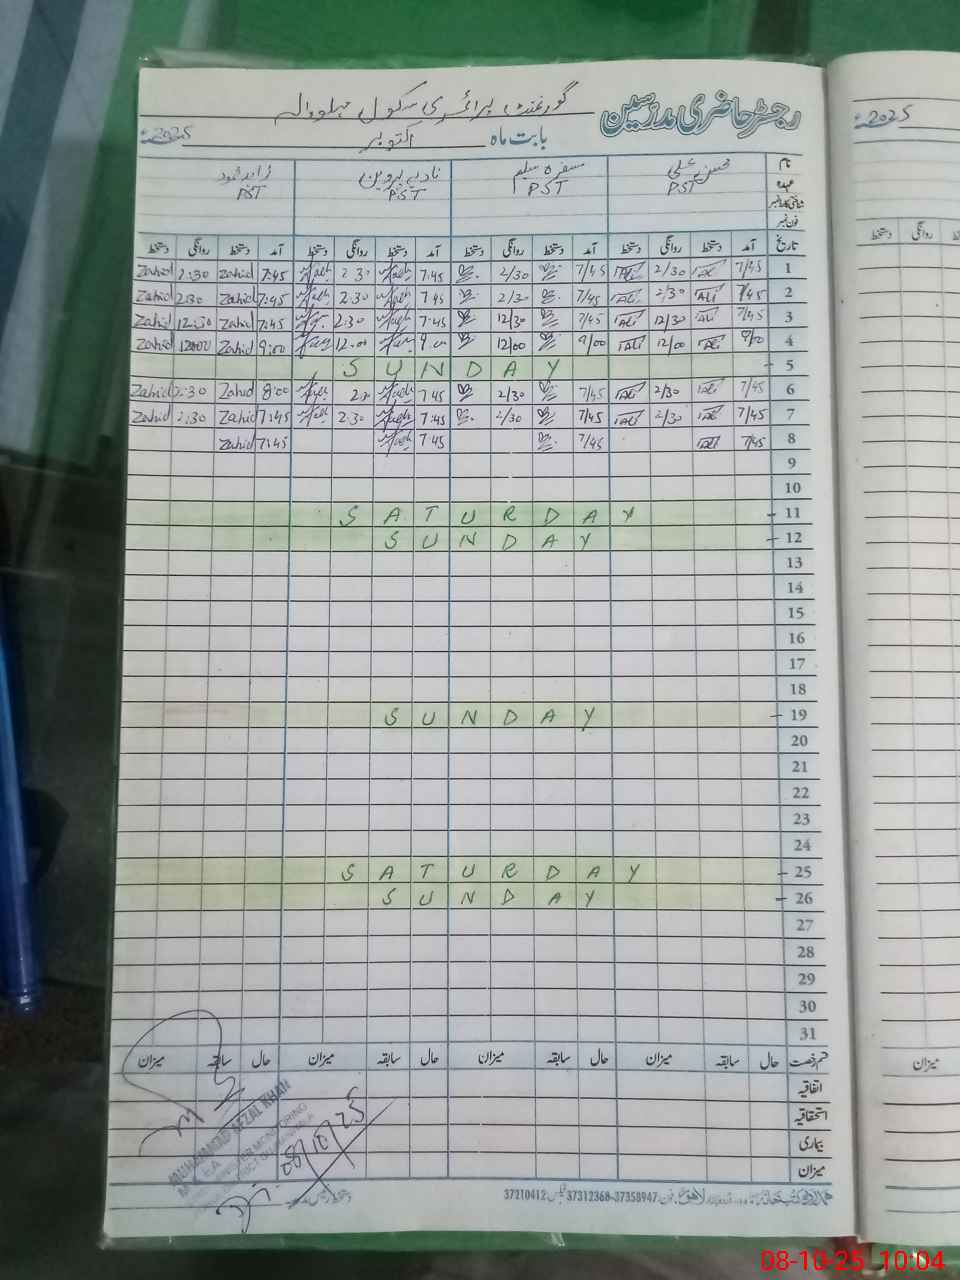 رجسٹر حاضری مدرسین گورنمنٹ پرائمری سکول
2025
بابت ماہ اکتوبر 2025ء
نام محسن علی سفرہ سلیم نادیہ پروین زاہد محمود
عہدہ PST PST PST PST
شناختی کارڈ نمبر
فون نمبر
تاریخ آمد دستخط روانگی دستخط آمد دستخط روانگی دستخط آمد دستخط روانگی دستخط آمد دستخط روانگی دستخط
1 7/45 2/30 7/45 2/30 7:45 2:30 7:45 Zahid 2:30 Zahid
2 7/45 2/30 7/45 2/30 7:45 2:30 7:45 Zahid 2:30 Zahid
3 7/45 12/30 7/45 12/30 7:45 2:30 7:45 Zahid 12:30 Zahid
4 12/00 9/00 12/00 12:00 9:00 Zahid 12:00 Zahid
5 SUNDAY
6 7/45 2/30 7/45 2/30 7:45 8:00 Zahid 2:30 Zahid
7 7/45 2/30 7/45 2/30 7:45 2:30 7:45 Zahid 2:30 Zahid
8 7/45 7/45 7:45 7:45 Zahid
9
10
11 SATURDAY
12 SUNDAY
13
14
15
16
17
18
19 SUNDAY
20
21
22
23
24
25 SATURDAY
26 SUNDAY
27
28
29
30
31
قسم رخصت حال سابقہ میزان حال سابقہ میزان حال سابقہ میزان حال سابقہ میزان
اتفاقیہ
استحقاقیہ
بیماری
میزان
MUHAMMAD AFZAL KHAN
08/10/25
لاہور فون 37358947-37312368 فیکس 37210412
2025
دستخط روانگی
میزان
08-10-25 10:04